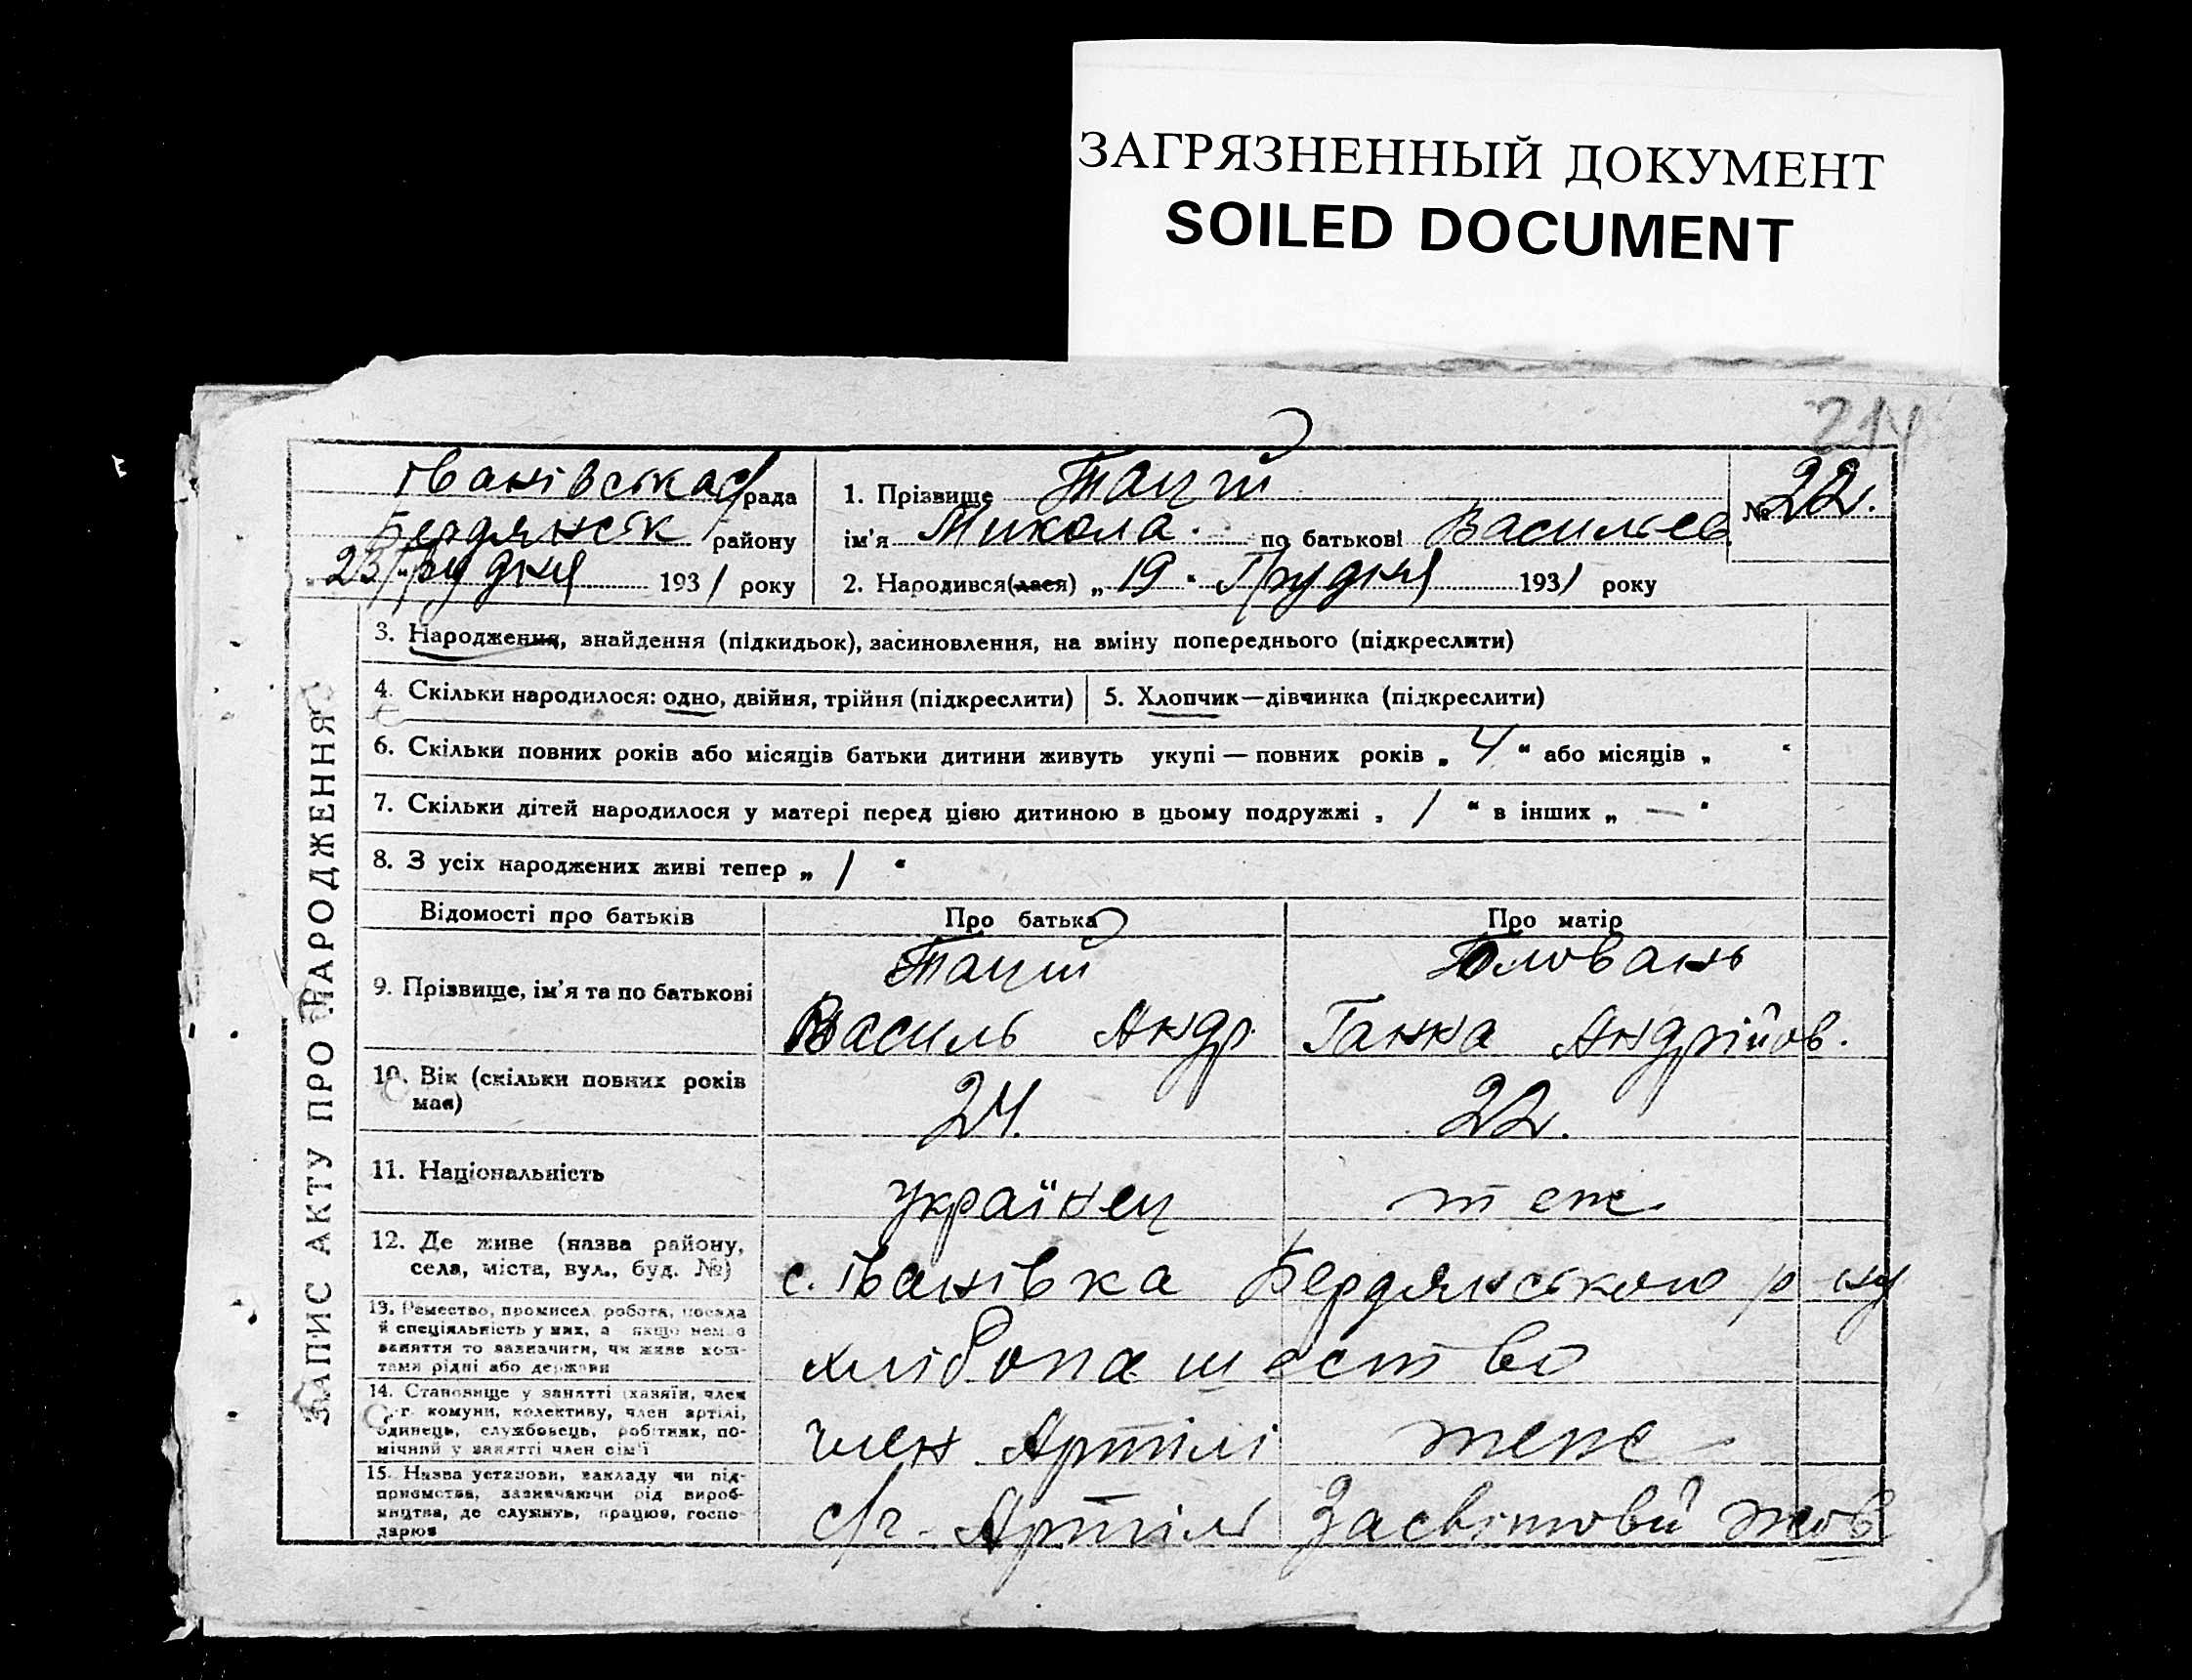 ЗАГРЯЗНЕННЫЙ ДОКУМЕНТ
SOILED DOCUMENT
214
Іванівська с/рада
Бердянськ району
23/ Грудня 1931 року
1. Прізвище Тацій
ім'я Микола. по батькові Васильєв.
№ 22.
2. Народився(лася) „19" Грудня 1931 року
ЗАПИС АКТУ ПРО НАРОДЖЕННЯ
3. Народження, знайдення (підкидьок), засиновлення, на зміну попереднього (підкреслити)
4. Скільки народилося: одно, двійня, трійня (підкреслити) 5. Хлопчик—дівчинка (підкреслити)
6. Скільки повних років або місяців батьки дитини живуть укупі — повних років „ 4 " або місяців „ "
7. Скільки дітей народилося у матері перед цією дитиною в цьому подружжі „ 1 " в інших „ — "
8. З усіх народжених живі тепер „ 1 "
Відомості про батьків Про батька Про матір
9. Прізвище, ім'я та по батькові
Тацій Головань
Василь Андр. Ганна Андрійов.
10. Вік (скільки повних років має)
24. 22.
11. Національність
українец теж
12. Де живе (назва району, села, міста, вул., буд. №)
с. Іванівка Бердянського р-ну
13. Ремество, промисел, робота, посада
й спеціяльність у них, а якщо немає
заняття то зазначити, чи живе кош-
тами рідні або держави
хлібопашество
14. Становище у занятті (хазяїн, член
с.-г. комуни, колективу, член артілі,
одинець, службовець, робітник, по-
мічний у занятті член сім'ї
член Артілі теж
15. Назва установи, закладу чи під-
приємства, зазначаючи рід вироб-
ництва, де служить, працює, госпо-
дарює
с/г. Артіль Засвітовий жов